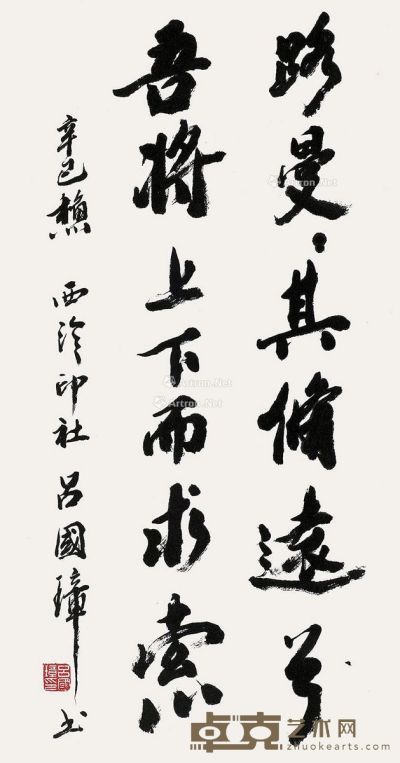 路曼〻其脩遠兮
吾將上下而求索
辛巳 西泠印社 呂國璋書
Artron.Net
卓克艺术网
zhuokearts.com